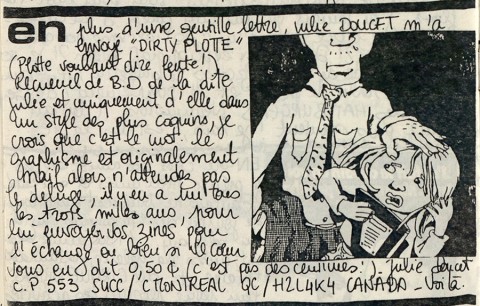 en plus d'une gentille lettre, Julie DOUCET m'a
envoyé "DIRTY PLOTTE"
(Plotte voulant dire fente!)
Recueil de B.D de la dite
julie et uniquement d'elle dans
un style des plus coquins, je
crois que c'est le mot. le
graphisme et originalement
mais alors n'attendez pas
le deluge, il y en a un tous
les trois mille ans, pour
lui envoyer vos zines pour
l'échange ou bien si le cœur
vous en dit 0,50 ¢ (c'est pas des centimes!)_ Julie doucet
c.P 553 SUCC/'C MONTREAL QC/H2L4K4 CANADA_ Voilà.